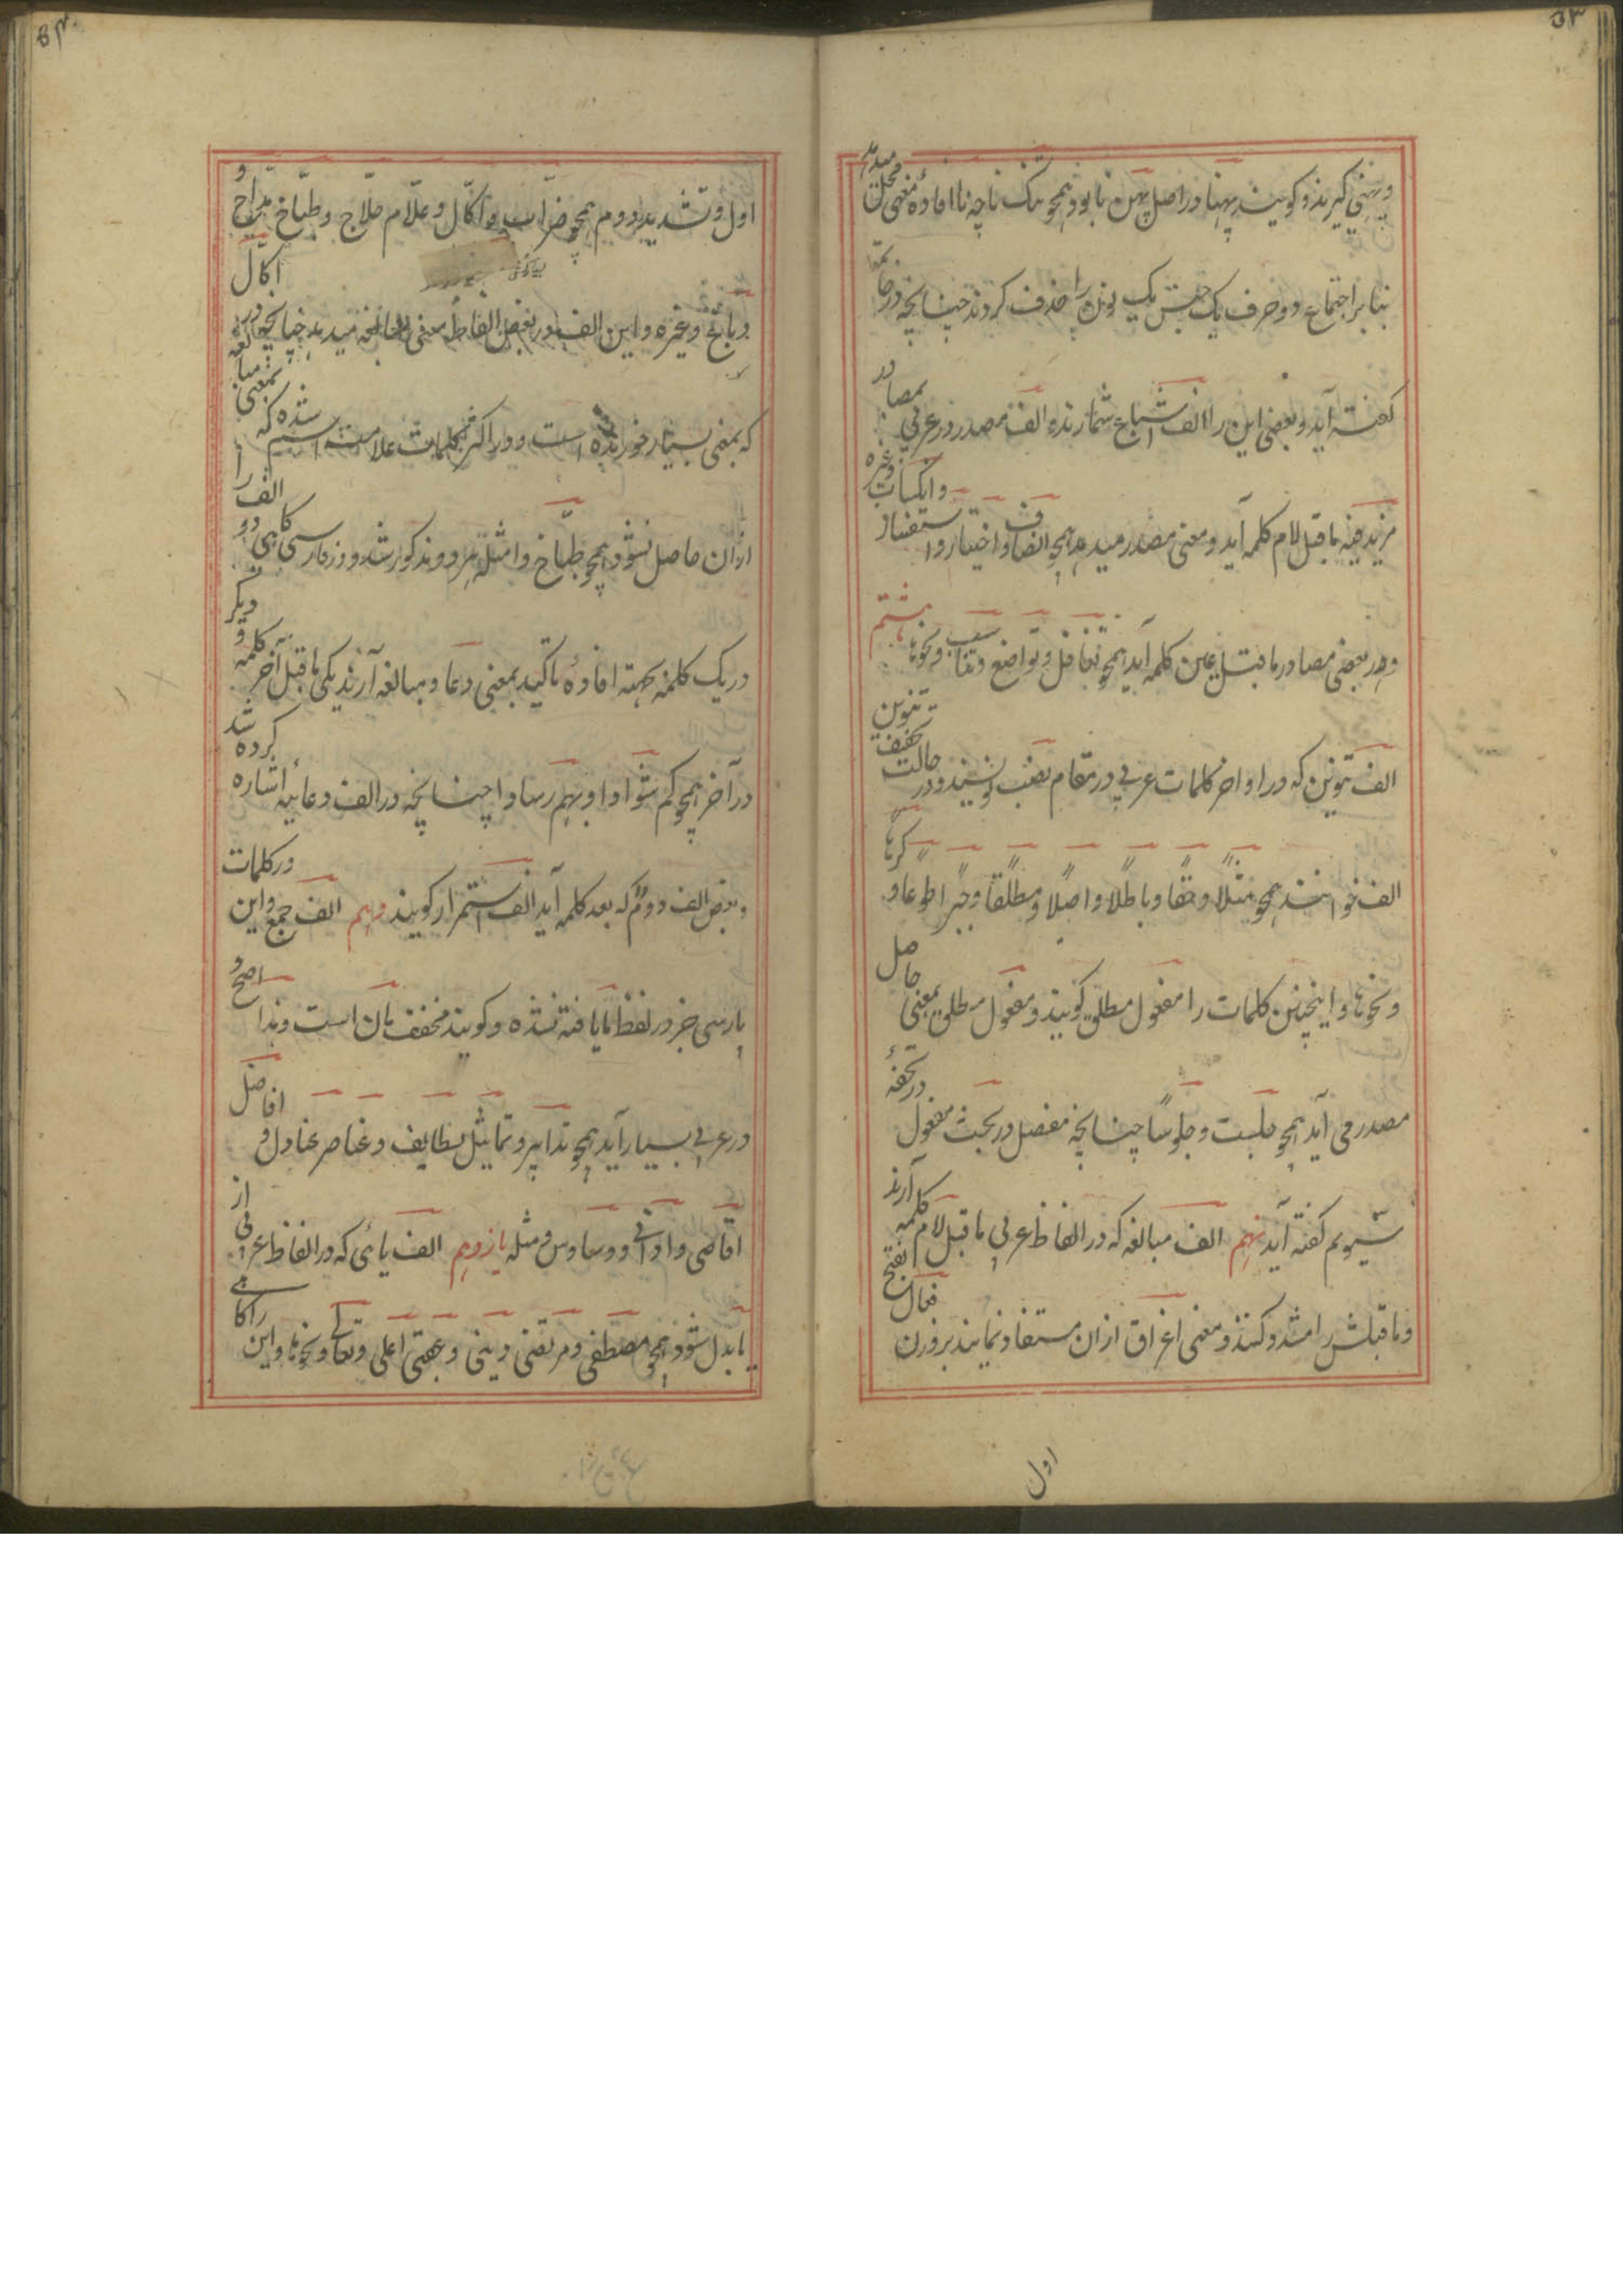 ۵۳
و پهنی گیرند و گویند پهنا در اصل پهن نا بود همچو تنگ نا چه نا افادهٔ معنی محل میدهد
بنا بر اجتماع دو حرف یک جنس یک نون را حذف کردند چنانچه در خاتمه
گفته آید و بعضی این را الف اشباع شمارند الف مصدر در عربی بمصادر
مزید فیه ماقبل لام کلمه آید و معنی مصدر میدهد همچو انصاف و اختیار و استغفار و اکتساب وغیره
و در بعضی مصادر ماقبل عین کلمه آید همچو تغافل و تواضع و تعاقب و نحوها هشتم
الف تنوین که در اواخر کلمات عربی در مقام نصب نویسند و در حالت تخفیف تنوین
الف خوانند همچو مثلاً و حقاً و باطلاً و اصلاً و مطلقاً و جبراً طوعاً و کرهاً
و نحوها و اینچنین کلمات را مفعول مطلق گویند و مفعول مطلق بمعنی حاصل
مصدر می آید همچو جلست و جلوساً چنانچه مفصل در بحث مفعول در تحفهٔ
سیوم گفته آید نهم الف مبالغه که در الفاظ عربی ماقبل لام کلمه آرند
و ماقبلش را مشدد کنند و معنی اغراق ازان مستفاد نمایند بر وزن فعال بفتح
اول
۵۴
اول و تشدید دوم همچو ضرّاب و اکّال و علّام حلّاج و طبّاخ
و دبّاغ وغیره و این الف در بعضی الفاظ معنی مبالغه میدهد چنانچه در اکّال
که بمعنی بسیار خورنده است و در اکثر کلمات علامت اسم شده که بمعنی مبالغه
ازان حاصل نشود همچو طبّاخ و امثله هر دو مذکور شد و در فارسی گاهی دو الف را
در یک کلمه بجهته افادهٔ تاکید بمعنی دعا و مبالغه آرند یکی ماقبل آخر کلمه و دیگر
در آخر همچو کم شوادا و بهم رسادا چنانچه در الف دعائیه اشاره کرده شد
و بعض الف دوم که بعد کلمه آید الف استمرار گویند دهم الف جمع و این در کلمات
پارسی جز در لفظ ما یافته نشده و گویند مخفف مان است و هذا اصح و
در عربی بسیار آید همچو تدابیر و تماثیل لطایف و عناصر عنادل و افاضل
اقاصی و اوانی و وساوس و مثله یازدهم الف یائی که در الفاظ عربی از
یا بدل شود همچو مصطفی و مرتضی و عقبی اعلی و تعالی و نحوها و این را گاهی